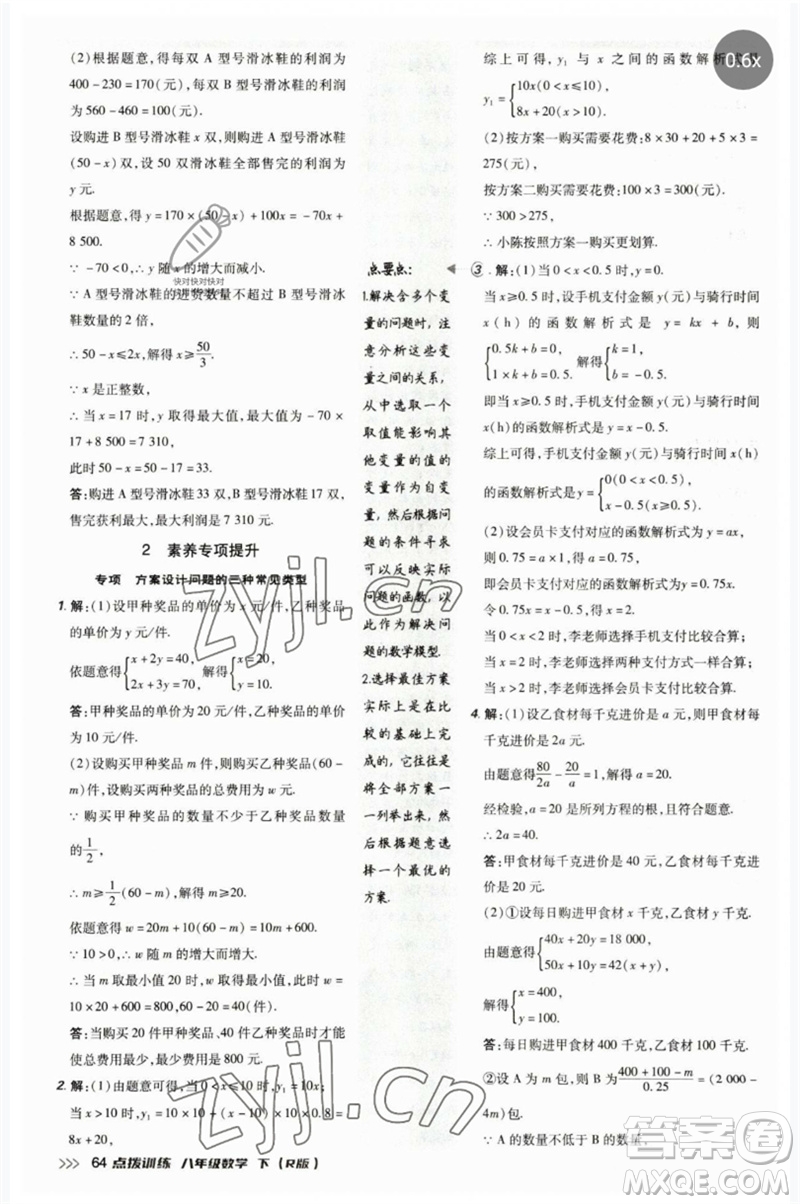 (2)根据题意,得每双 A 型号滑冰鞋的利润为
400-230=170(元),每双 B 型号滑冰鞋的利润
为 560-460=100(元).
设购进 B 型号滑冰鞋 x 双,则购进 A 型号滑冰鞋
(50-x)双,设 50 双滑冰鞋全部售完的利润为
y 元.
根据题意,得 y=170×(50-x)+100x=-70x+
8 500.
∵-70<0,∴y 随 x 的增大而减小.
∵A 型号滑冰鞋的进货数量不超过 B 型号滑冰
鞋数量的 2 倍,
∴50-x≤2x,解得 x≥50/3.
∵x 是正整数,
∴当 x=17 时,y 取得最大值,最大值为-70×
17+8 500=7 310,
此时 50-x=50-17=33.
答:购进 A 型号滑冰鞋 33 双,B 型号滑冰鞋 17 双,
售完获利最大,最大利润是 7 310 元.
2 素养专项提升
专项 方案设计问题的三种常见类型
1.解:(1)设甲种奖品的单价为 x 元/件,乙种奖品
的单价为 y 元/件.
依题意得{x+2y=40, 2x+3y=70, 解得{x=20, y=10.
答:甲种奖品的单价为 20 元/件,乙种奖品的单价
为 10 元/件.
(2)设购买甲种奖品 m 件,则购买乙种奖品(60-
m)件,设购买两种奖品的总费用为 w 元.
∵购买甲种奖品的数量不少于乙种奖品数量
的 1/2,
∴m≥1/2(60-m),解得 m≥20.
依题意得 w=20m+10(60-m)=10m+600.
∵10>0,∴w 随 m 的增大而增大.
∴当 m=20 时,w 取得最小值,最小值 w=
10×20+600=800,60-m=60-20=40(件).
答:当购买 20 件甲种奖品、40 件乙种奖品时才能
使总费用最少,最少费用是 800 元.
2.解:(1)由题意可得,当 0<x≤10 时,y₁=10x;
当 x>10 时,y₁=10×10+(x-10)×10×0.8=
8x+20.
点要点:
1.解决含多个变
量的问题时,注
意分析这些变
量之间的关系,
从中选取一个
取值能影响其
他变量的值的
变量作为自变
量,然后根据问
题的条件寻求
可以反映实际
问题的函数,以
此作为解决问
题的数学模型.
2.选择最佳方案
实际上是在比
较的基础上完
成的,它往往是
将全部方案一
一列举出来,然
后根据题意选
择一个最优的
方案.
综上可得,y₁ 与 x 之间的函数解析式是
y₁={10x(0<x≤10), 8x+20(x>10).
(2)按方案一购买需要花费:8×30+20+5×3=
275(元),
按方案二购买需要花费:100×3=300(元).
∵300>275,
∴小陈按照方案一购买更划算.
3.解:(1)当 0<x<0.5 时,y=0,
当 x≥0.5 时,设手机支付金额 y(元)与骑行时间
x(h)的函数解析式是 y=kx+b,则
{0.5k+b=0, 1×k+b=0.5, 解得{k=1, b=-0.5,
即当 x≥0.5 时,手机支付金额 y(元)与骑行时间
x(h)的函数解析式是 y=x-0.5.
综上可得,手机支付金额 y(元)与骑行时间 x(h)
的函数解析式是 y={0(0<x<0.5), x-0.5(x≥0.5).
(2)设会员卡支付对应的函数解析式为 y=ax,
则 0.75=a×1,得 a=0.75,
即会员卡支付对应的函数解析式为 y=0.75x.
令 0.75x=x-0.5,得 x=2.
当 0<x<2 时,李老师选择手机支付比较合算;
当 x=2 时,李老师选择两种支付方式一样合算;
当 x>2 时,李老师选择会员卡支付比较合算.
4.解:(1)设乙食材每千克进价为 a 元,则甲食材
每千克进价为 2a 元.
由题意得80/2a-20/a=1,解得 a=20.
经检验,a=20 是所列方程的根,且符合题意.
∴2a=40.
答:甲食材每千克进价是 40 元,乙食材每千克进
价是 20 元.
(2)①设每日购进甲食材 x 千克,乙食材 y 千克.
由题意得{40x+20y=18 000, 50x+10y=42(x+y),
解得{x=400, y=100.
答:每日购进甲食材 400 千克,乙食材 100 千克.
②设 A 为 m 包,则 B 为(400+100-m)/0.25=(2 000-
4m)包.
∵A 的数量不低于 B 的数量,
64 点拨训练 八年级数学 下(R版)
0.6x
快对快对快对
zyjl.cn
zyjl.cn
答案圈
MXQE.COM